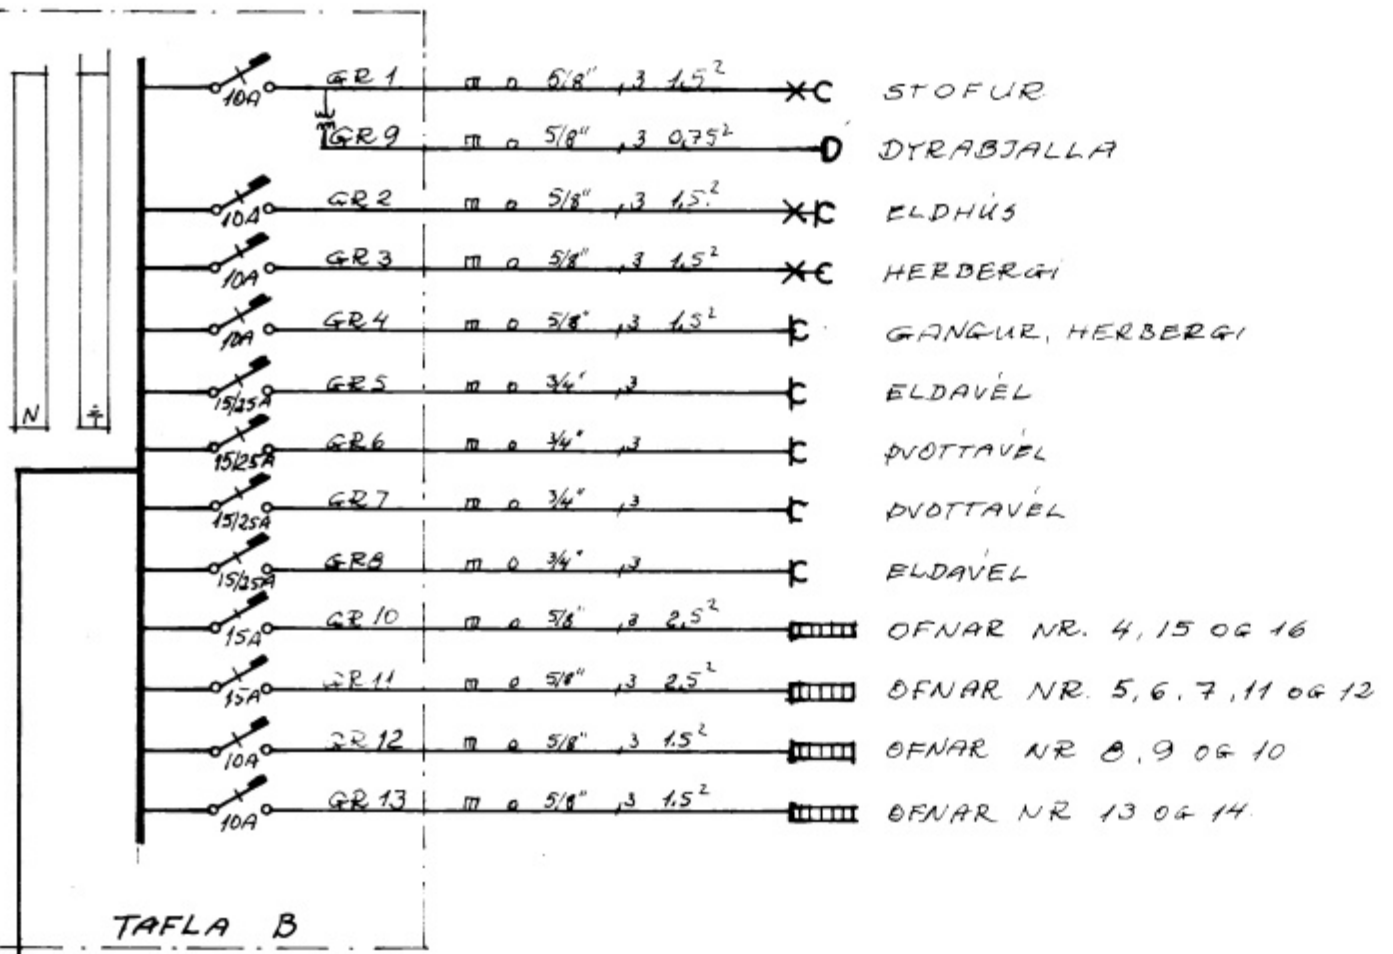 10A GR 1 m o 5/8" ,3 1,5² STOFUR
GR 9 m o 5/8" ,3 0,75² D DYRABJALLA
10A GR 2 m o 5/8" ,3 1,5² ELDHÚS
10A GR 3 m o 5/8" ,3 1,5² HERBERGI
10A GR 4 m o 5/8" ,3 1,5² GANGUR, HERBERGI
15/25A GR 5 m o 3/4" ,3 ELDAVÉL
15/25A GR 6 m o 3/4" ,3 ÞVOTTAVÉL
15/25A GR 7 m o 3/4" ,3 ÞVOTTAVÉL
15/25A GR 8 m o 3/4" ,3 ELDAVÉL
15A GR 10 m o 5/8" ,3 2,5² OFNAR NR. 4, 15 OG 16
15A GR 11 m o 5/8" ,3 2,5² OFNAR NR. 5, 6, 7, 11 OG 12
10A GR 12 m o 5/8" ,3 1.5² OFNAR NR 8, 9 OG 10
10A GR 13 m o 5/8" ,3 1,5² OFNAR NR 13 OG 14.
N
TAFLA B